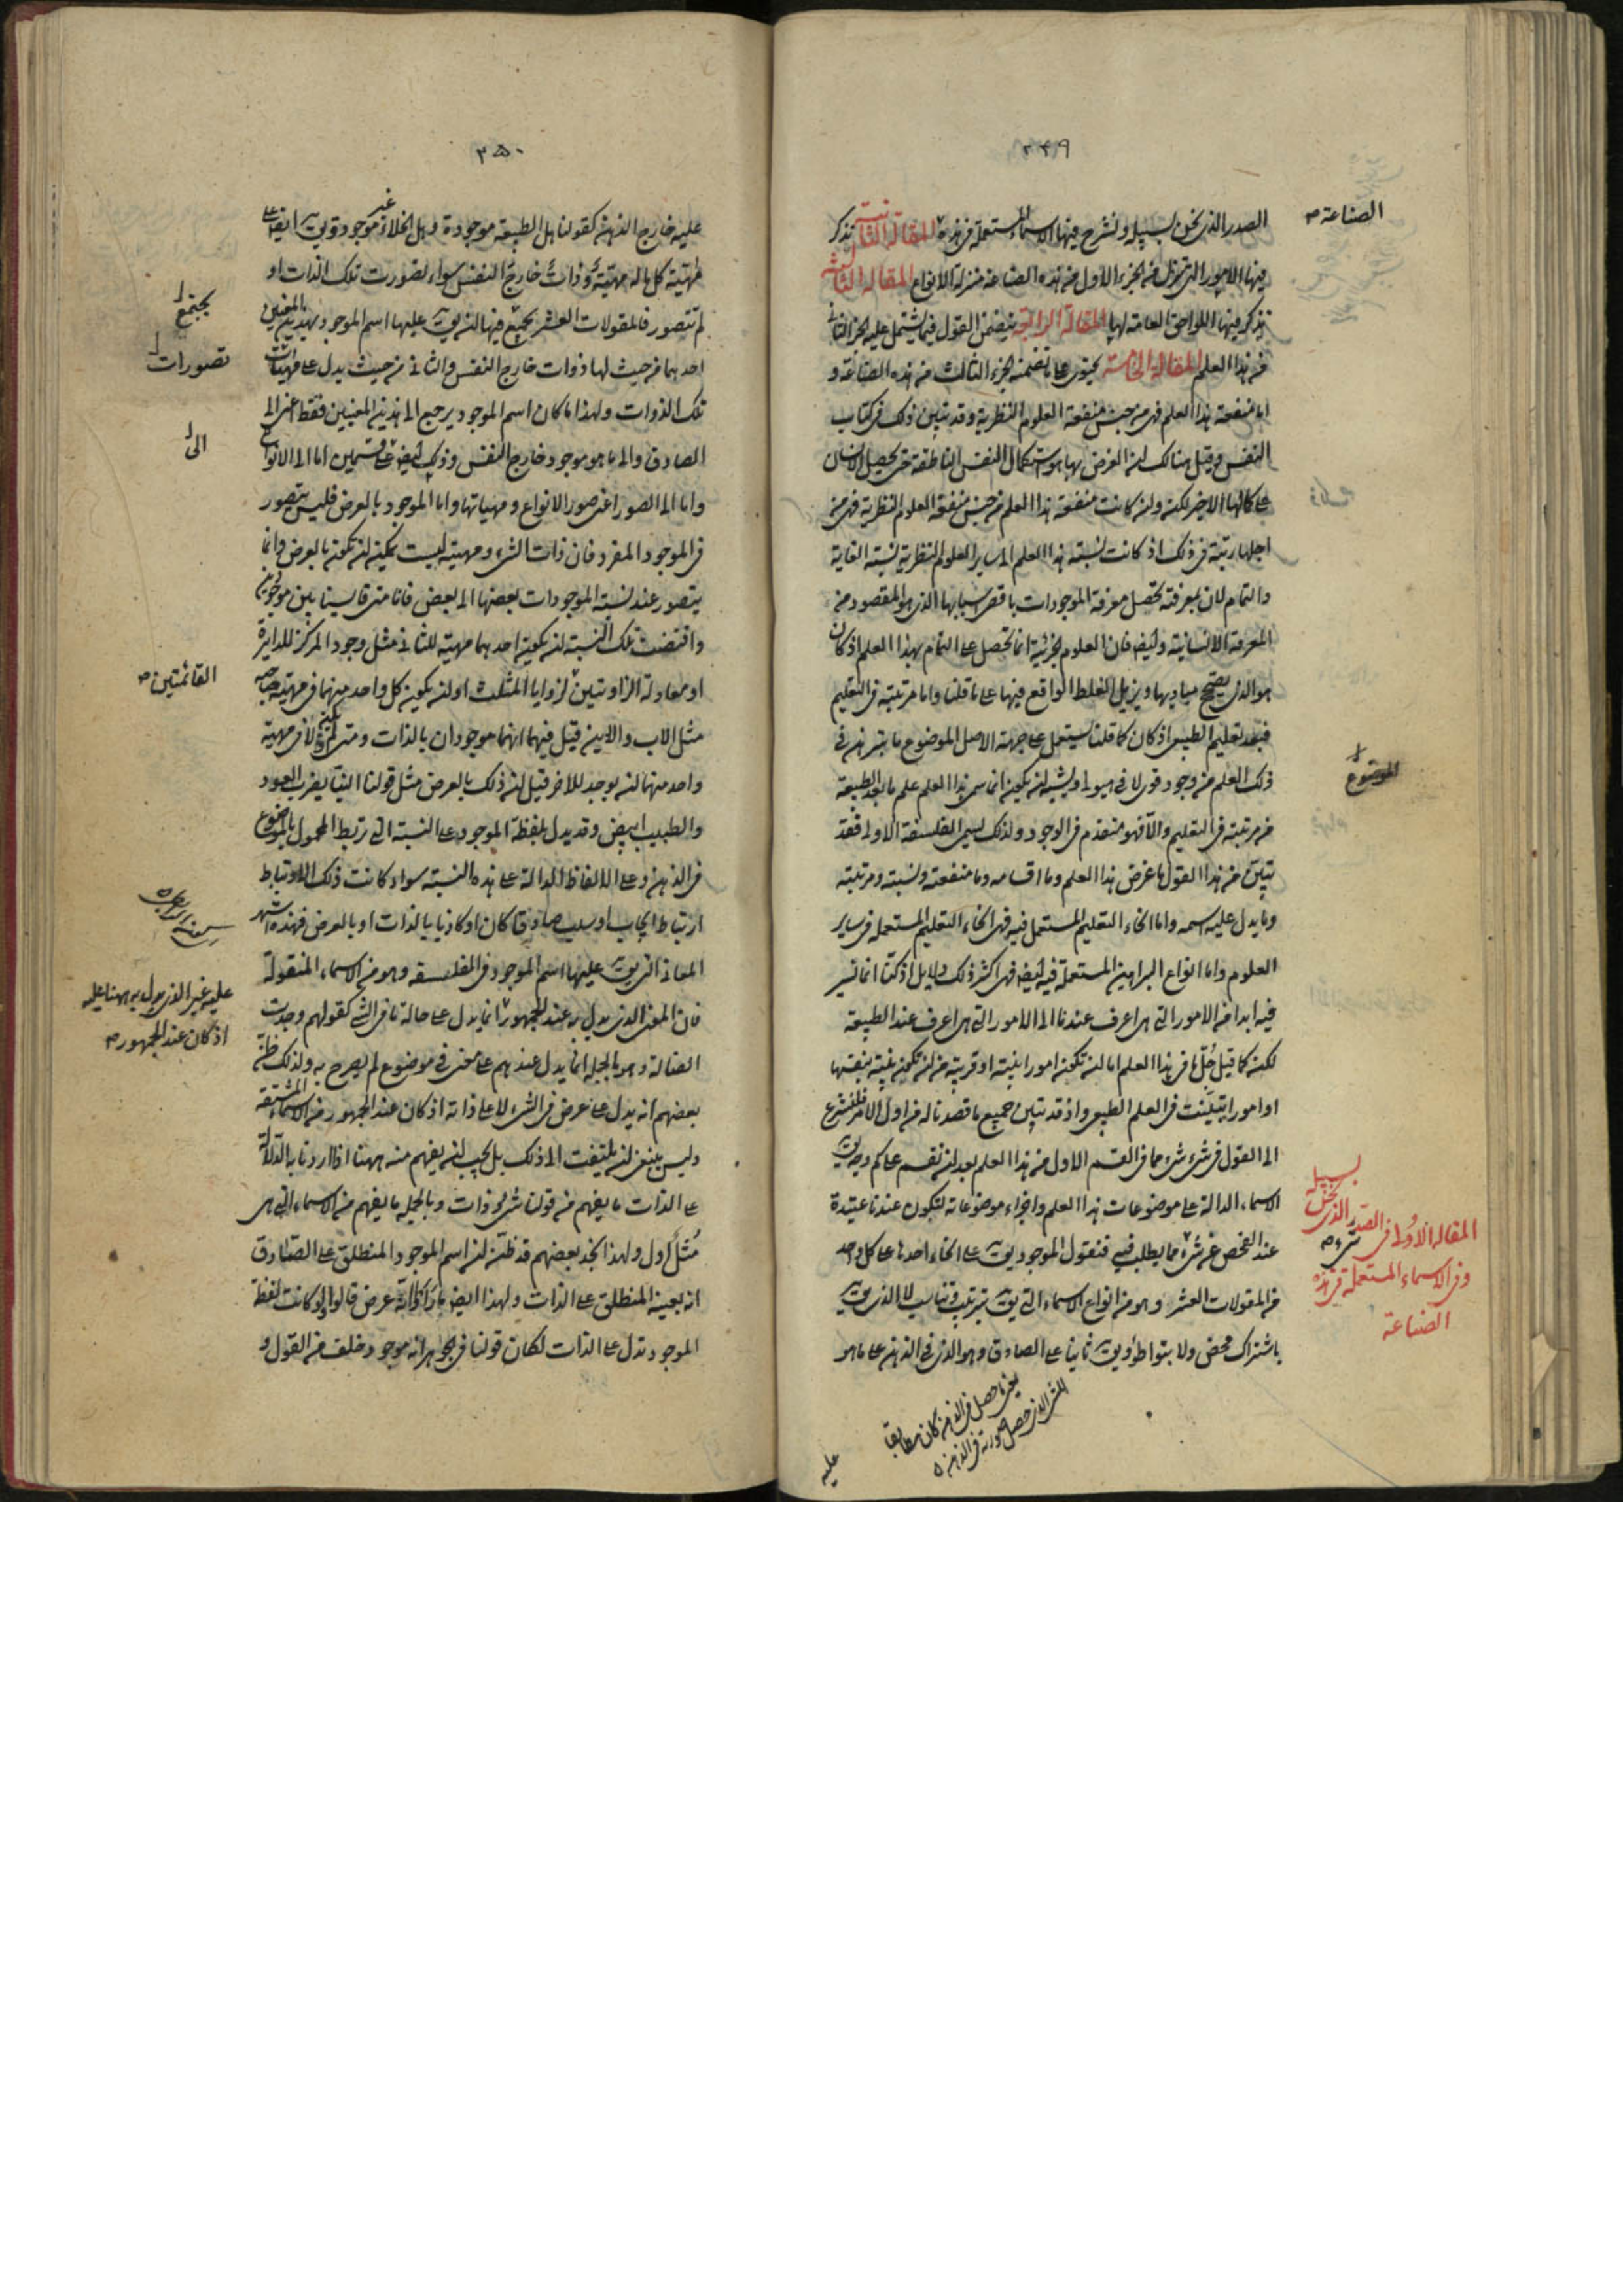 ٢٤٩
الصدر الذى نحن بسبيله ونشرح فيها الاسماء المستعملة فى هذه المقالة الثانية نذكر
الصناعة صح
فيها الامور التى تنزل من الجزء الاول من هذه الصناعة منزلة الانواع المقالة الثالثة
نذكر فيها اللواحق العامة لها المقالة الرابعة يتضمن القول فيما يشتمل عليه الجزء الثانى
من هذا العلم المقالة الخامسة يحتوى على ما تضمنه الجزء الثالث من هذه الصناعة و
اما منفعة هذا العلم فهى من جنس منفعة العلوم النظرية وقد تبين ذلك فى كتاب
النفس وقيل هنالك ان الغرض بها هو استكمال النفس الناطقة حتى يحصل الانسان
على كمالها الاخير لكنه وان كانت منفعة هذا العلم من جنس منفعة العلوم النظرية فهى من
اجلها رتبة فى ذلك اذ كانت نسبة هذا العلم الى سائر العلوم النظرية نسبة الغاية
والتمام لان بمعرفته تحصل معرفة الموجودات باقصى اسبابها الذى هو المقصود من
المعرفة الانسانية وايضا فان العلوم الجزئية انما تحصل على التمام بهذا العلم اذ كان
هو الذى يصحح مباديها ويزيل الغلط الواقع فيها على ما قلنا واما مرتبته فى التعليم
فبعد تعليم الطبيعى اذ كان كما قلنا يستعمل على جهة الاصل الموضوع ما يتبرهن فى
الموضوع
ذلك العلم من وجود قوى لا فى هيولى ويشبه ان يكون انما سمى هذا العلم علم ما بعد الطبيعة
من مرتبته فى التعليم والا فهو متقدم فى الوجود ولذلك يسمى الفلسفة الاولى فقد
تبين من هذا القول ما غرض هذا العلم وما اقسامه وما منفعته ونسبته ومرتبته
وما يدل عليه اسمه واما انحاء التعليم المستعمل فيه فهى انحاء التعليم المستعملة فى ساير
العلوم واما انواع البراهين المستعملة فيه ايضا فهى اكثر ذلك دلايل اذ كنا انما نسير
فيه ابدا من الامور التى هى اعرف عندنا الى الامور التى هى اعرف عند الطبيعة
لكنه كما قيل جلّ ما فى هذا العلم اما ان تكون امورا بينة او قريبة من ان تكون بينة بنفسها
او امورا تبيّنت فى العلم الطبيعى واذ قد تبين جميع ما قصدنا له من اول الامر فلنشرع
الى القول فى شىء شىء مما فى القسم الاول من هذا العلم بعد ان نقسم على كم وجه يق
الاسماء الدالة على موضوعات هذا العلم واجزاء موضوعاته لتكون عندنا عتيدة
عند الفحص عن شىء مما يطلب فيه فنقول الموجود يق على انحاء احدها على كل واحد
المقالة الاولى فى الصدر الذى نحن بسبيله
وفى الاسماء المستعملة فى هذه
الصناعة
من المقولات العشر وهو من انواع الاسماء التى يق بترتيب وتناسب لا الذى يق
باشتراك محض ولا بتواطؤ ويق ثانيا على الصادق وهو الذى فى الذهن على ما هو
يعنى ما حصل فى الذهن كان مطابقا
للشىء الذى حصل صورته فى الذهن
عليه
٢٥٠
عليه خارج الذهن كقولنا هل الطبيعة موجودة وهل الخلاء غير موجود ويق ايضا على
ماهية كل ما له مهية وذات خارج النفس سواء تصورت تلك الذات او
لم تتصور فالمقولات العشر يجتمع فيها ان يق عليها اسم الموجود بهذين المعنيين
يجتمع
احدهما من حيث لها ذوات خارج النفس والثانى من حيث يدل على مهيات
تصورات
تلك الذوات ولهذا ما كان اسم الموجود يرجع الى هذين المعنيين فقط اعنى الى
الصادق والى ما هو موجود خارج النفس وذلك ايضا على قسمين اما الى الانواع
الى
واما الى الصور اعنى صور الانواع ومهياتها واما الموجود بالعرض فليس يتصور
فى الموجود المفرد فان ذات الشىء ومهيته ليست يمكن ان تكون بالعرض وانما
يتصور عند نسبة الموجودات بعضها الى بعض فانا متى قايسنا بين موجودين
واقتضت تلك النسبة ان يكون احدهما مهية للثانى مثل وجود المركز للدايرة
او معادلة الزاويتين لزوايا المثلث او ان يكون كل واحد منهما فى مهية صاحبه
القائمتين صح
مثل الاب والابن قيل فيهما انهما موجودان بالذات ومتى لم يكن لا فى مهية
واحد منهما ان يوجد للاخر قيل ان ذلك بالعرض مثل قولنا البنّا يضرب العود
والطبيب ابيض وقد يدل بلفظة الموجود على النسبة التى تربط المحمول بالموضوع
فى الذهن وعلى الالفاظ الدالة على هذه النسبة سواء كانت ذلك الارتباط
ارتباط ايجاب او سلب صادقا كان او كاذبا بالذات او بالعرض فهذه اشهر
المعانى التى يق عليها اسم الموجود فى الفلسفة وهو من الاسماء المنقولة
فان المعنى الذى يدل به عند الجمهور انما يدل على حالة ما فى الشىء كقولهم وجدت
عليه غير الذى يدل به ههنا عليه
اذ كان عند الجمهور صح
الضالة وهو بالجملة انما يدل عندهم على معنى فى موضوع لم يصرح به ولذلك ظن
بعضهم انه يدل على عرض فى الشىء لا على ذاته اذ كان عند الجمهور من الاسماء المشتقة
وليس ينبغى ان يلتفت الى ذلك بل يجب ان يفهم منه ههنا اذا اردنا به الدلالة
على الذات ما يفهم من قولنا شىء وذات وبالجملة ما يفهم من الاسماء التى هى
مُثُل اول ولهذا نجد بعضهم قد ظن ان اسم الموجود المنطلق على الصادق
انه بعينه المنطلق على الذات ولهذا ايضا ما راوا انه عرض قالوا لو كانت لفظة
الموجود تدل على الذات لكان قولنا فى الجوهر انه موجود خلف من القول و